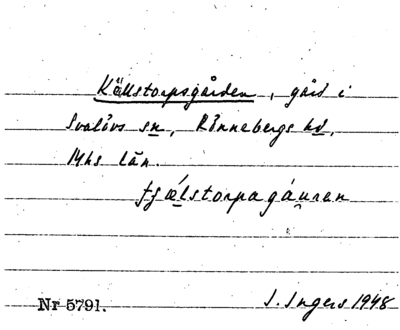 Källstorpsgården, gård i
Svalövs sn, Rönnebergs hd,
Mhs län.
fjǽlstorpagáuran
Nr 5791.
I. Ingers 1948